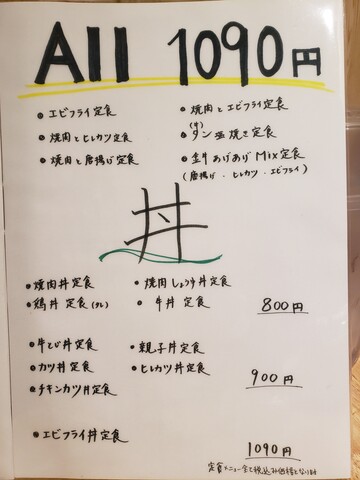 All 1090円
• エビフライ定食
• 焼肉とエビフライ定食
• 焼肉とヒレカツ定食
• (牛)タン塩焼き定食
• 焼肉と唐揚げ定食
• 全部あげあげMix定食
(唐揚げ・ヒレカツ・エビフライ)
丼
• 焼肉丼定食
• 焼肉しょうゆ丼定食
• 鶏丼定食(タレ)
• 牛丼定食
800円
• 牛とじ丼定食
• 親子丼定食
• カツ丼定食
• ヒレカツ丼定食
900円
• チキンカツ丼定食
• エビフライ丼定食
1090円
定食メニュー全て税込み価格となります